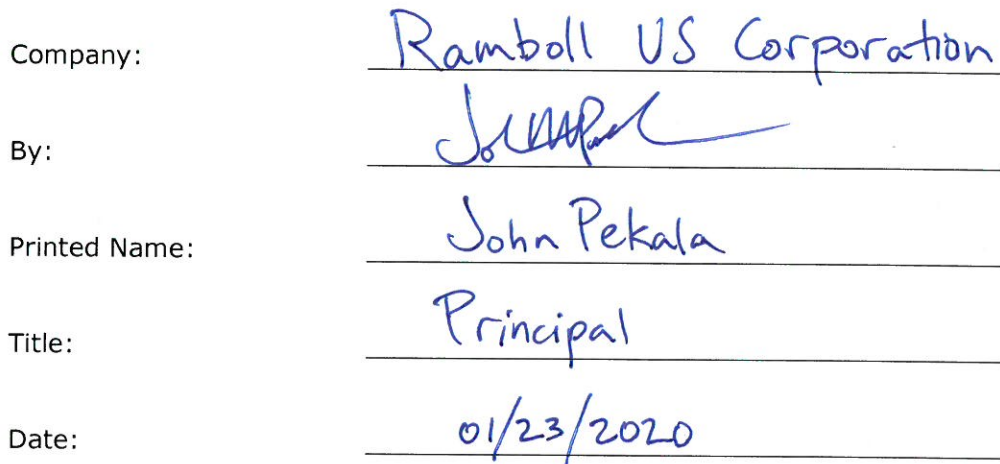 Company: Ramboll US Corporation
By:
Printed Name: John Pekala
Title: Principal
Date: 01/23/2020